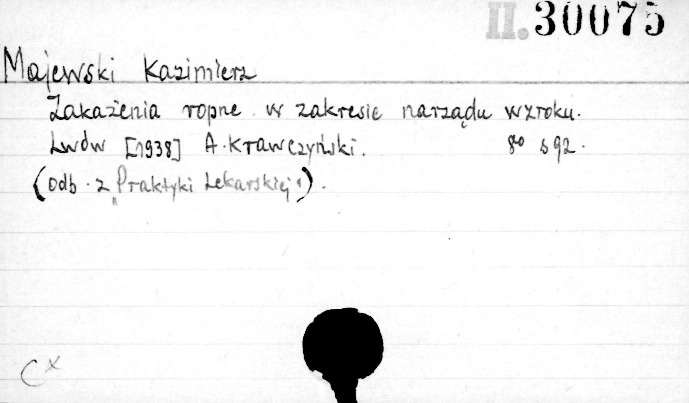 II. 30075
Majewski Kazimierz
Zakażenia ropne w zakresie narządu wzroku.
Lwów [1938] A. Krawczyński. 8° s 92.
(odb. z „Praktyki Lekarskiej").
C x